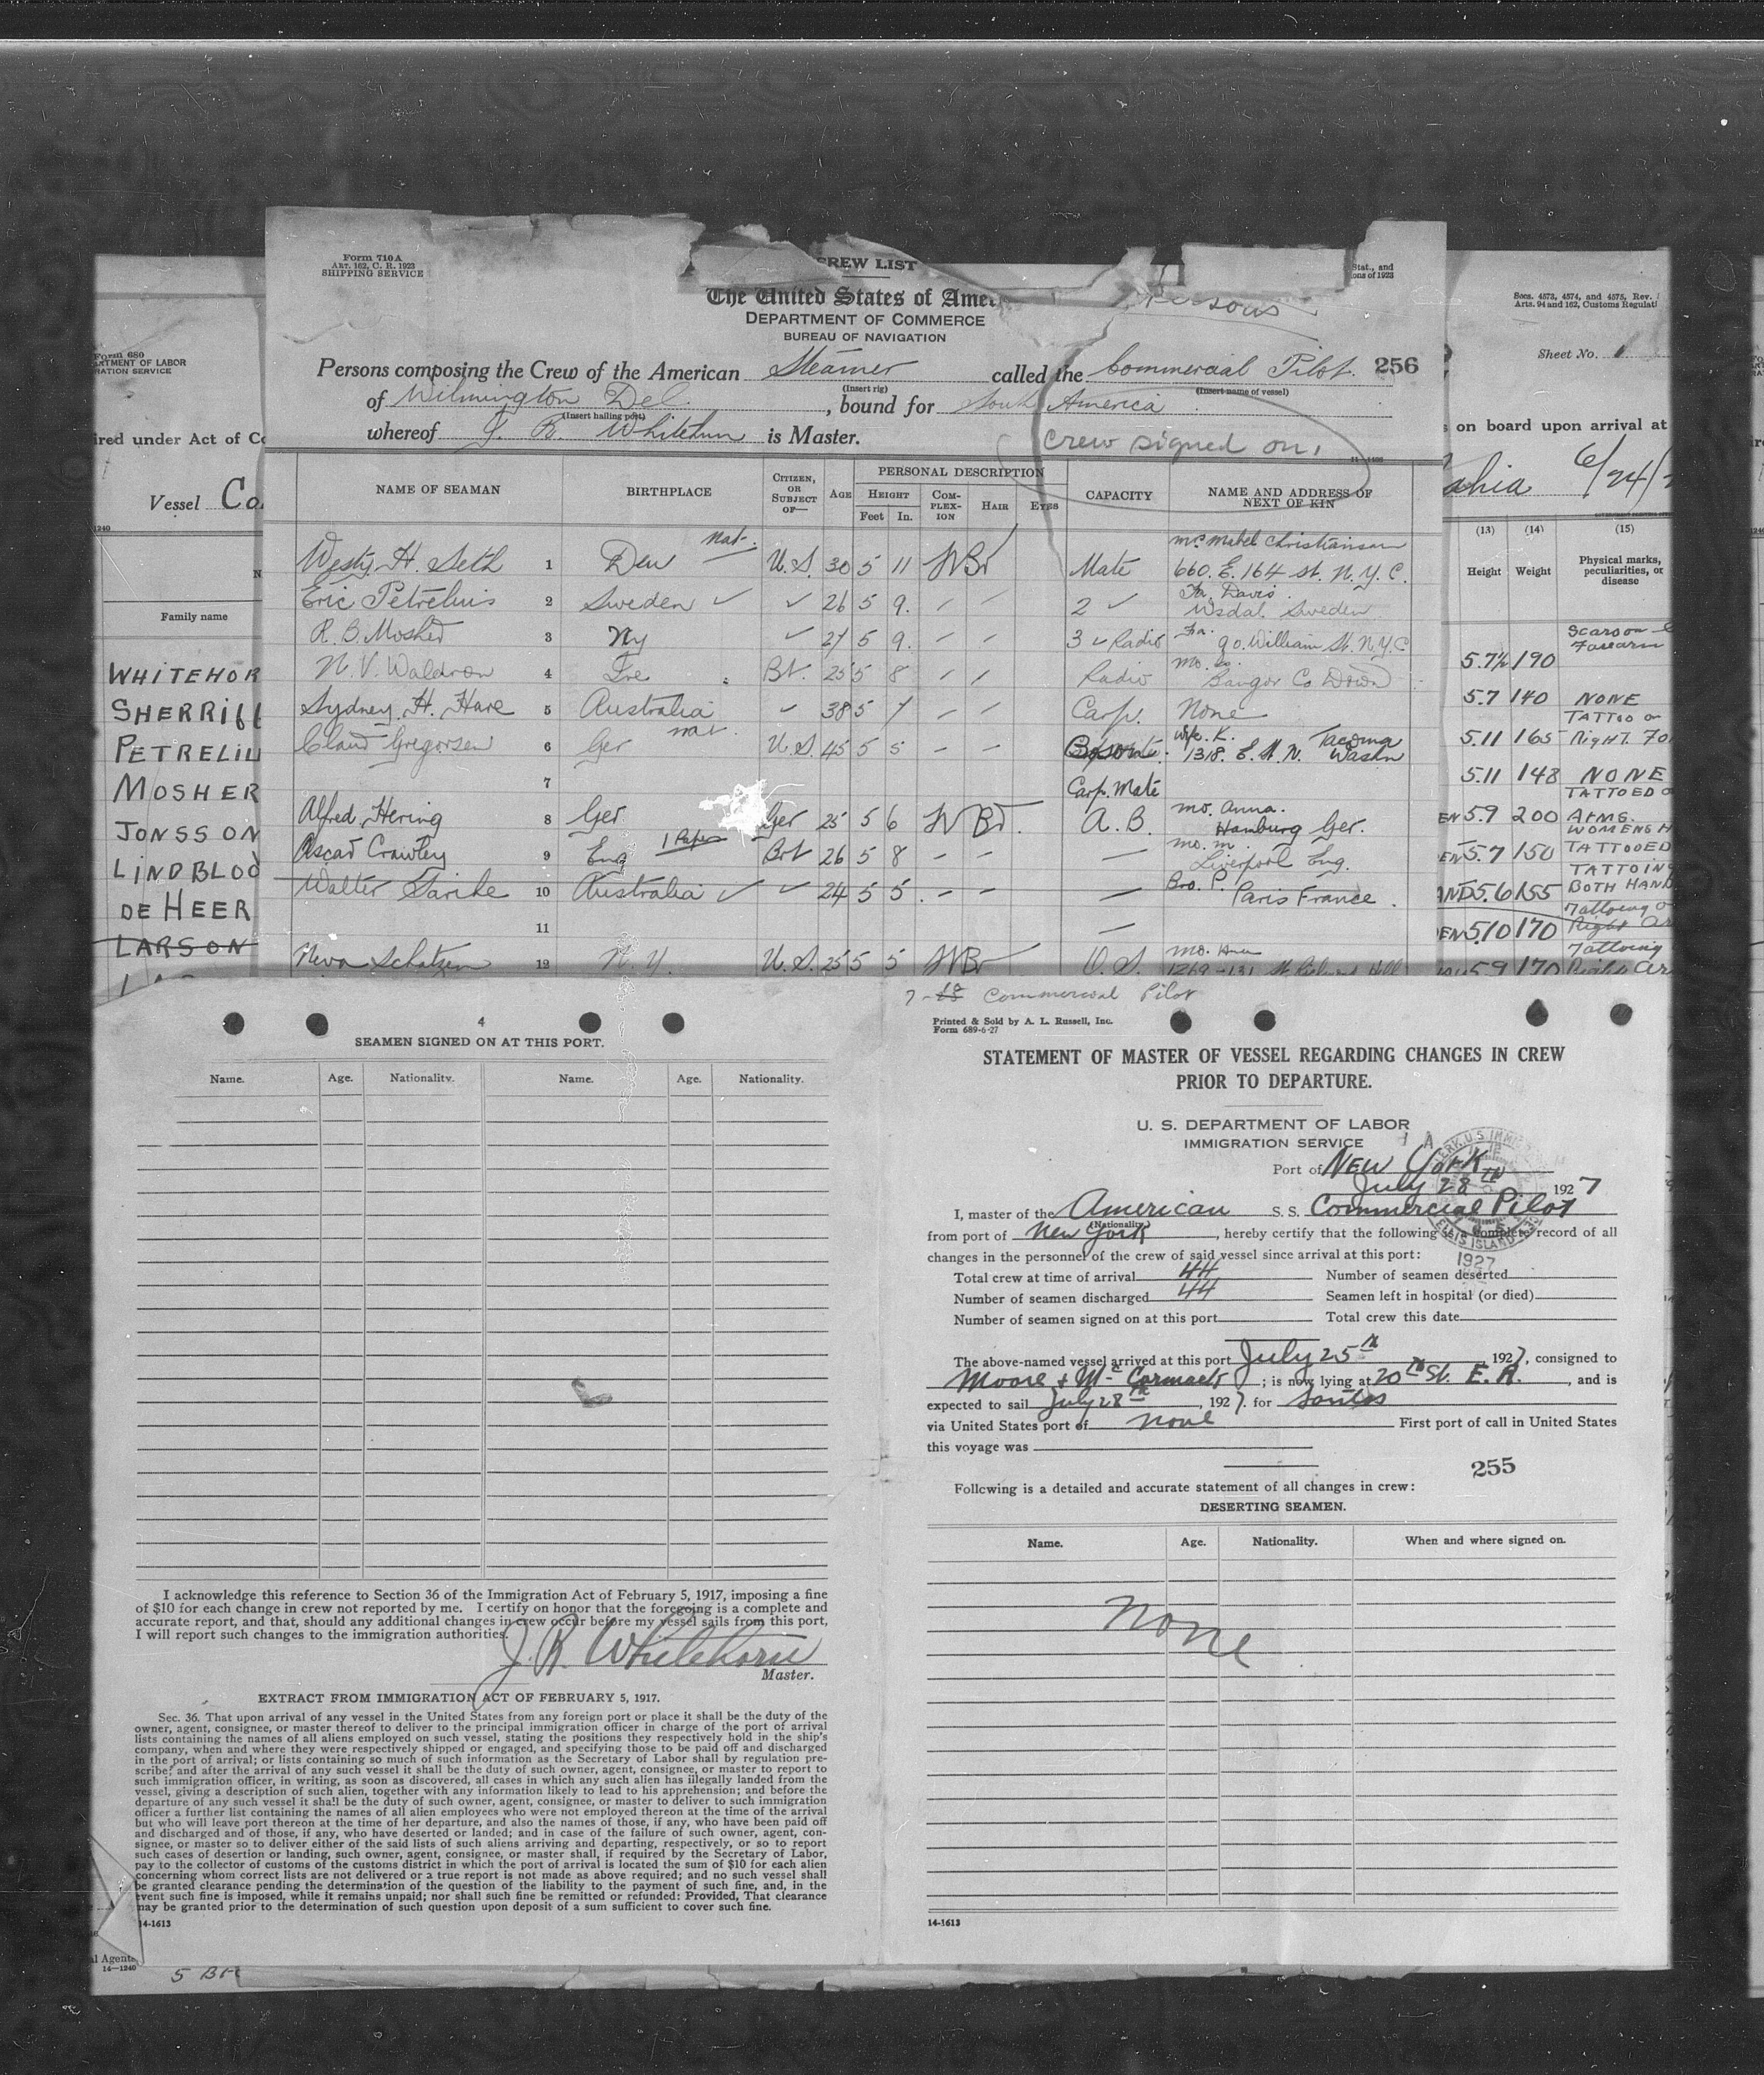 Form 710A
ART. 162, C. R. 1923
SHIPPING SERVICE
CREW LIST
The United States of Amer
DEPARTMENT OF COMMERCE
BUREAU OF NAVIGATION
Stat., and
ons of 1923
Persons
Persons composing the Crew of the American Steamer called the Commercial Pilot. 256
(Insert rig) (Insert name of vessel)
of Wilmington Del. , bound for South America
(Insert hailing port)
whereof J. R. Whitehorn is Master.
Crew signed on.
NAME OF SEAMAN BIRTHPLACE CITIZEN, OR SUBJECT OF— AGE PERSONAL DESCRIPTION HEIGHT Feet In. COMPLEXION HAIR EYES CAPACITY NAME AND ADDRESS OF NEXT OF KIN
Westy H. Seth 1 Den Nat. U. S. 30 5 11 W Br Mate Mabel Christiansen
660. E. 164 St. N. Y. C.
Eric Petrelius 2 Sweden ✓ ✓ 26 5 9. 2 ✓ Fa. Davis.
Sweden
R. B. Mosher 3 Ny ✓ 27 5 9. 3 ✓ Radio Fa. 90. William St. N.Y.C
N. V. Waldron 4 Ire Bt. 25 5 8 Radio mo.
Bangor Co Down
Sydney. H. Hare 5 Australia ✓ 38 5 7 Carp. None
Claud Gregorsen 6 Ger nat. U. S. 45 5 5 Wife. K.
1318. E. St. N. Tacoma Washn
7 Carp. Mate
Alfred Hering 8 Ger. Ger 25 5 6 W Br. A. B. mo. Anna.
Hamburg Ger.
Ascar Crawley 9 Eng 1 Paper Brt 26 5 8 mo. m.
Liverpool Eng.
Walter 10 Australia ✓ ✓ 24 5 5. Bro. P.
Paris France.
11
Schatzen 12 N. Y. U. S. 25 5 5 W Br O. S. mo.
1269-131 St. Richmond Hill
Form 680
ARTMENT OF LABOR
RATION SERVICE
ired under Act of Co
Vessel Co
1240
Family name
WHITEHOR
SHERRIFF
PETRELIU
MOSHER
JONSSON
LINDBLOO
DE HEER
LARSON
Secs. 4573, 4574, and 4575, Rev.
Arts. 94 and 162, Customs Regulati
Sheet No. 1
s on board upon arrival at
ahia 6/24/
(13) (14) (15)
Height Weight Physical marks, peculiarities, or disease
5.7½ 190 Scar on
Forearm
5.7 140 NONE
5.11 165 TATTOO or
RigHT. FO
5.11 148 NONE
EN 5.9 200 TATTOED
ARMS.
EN 5.7 150 WOMENS H
TATTOOED
AND 5.6 155 TATTOING
BOTH HAND
EN 5.10 170 Tattoing
Right Ar
5.9 170 Tattoing
Right Ar
4
SEAMEN SIGNED ON AT THIS PORT.
Name. Age. Nationality. Name. Age. Nationality.
I acknowledge this reference to Section 36 of the Immigration Act of February 5, 1917, imposing a fine
of $10 for each change in crew not reported by me. I certify on honor that the foregoing is a complete and
accurate report, and that, should any additional changes in crew occur before my vessel sails from this port,
I will report such changes to the immigration authorities.
J. R. Whitehorn
Master.
EXTRACT FROM IMMIGRATION ACT OF FEBRUARY 5, 1917.
Sec. 36. That upon arrival of any vessel in the United States from any foreign port or place it shall be the duty of the
owner, agent, consignee, or master thereof to deliver to the principal immigration officer in charge of the port of arrival
lists containing the names of all aliens employed on such vessel, stating the positions they respectively hold in the ship's
company, when and where they were respectively shipped or engaged, and specifying those to be paid off and discharged
in the port of arrival; or lists containing so much of such information as the Secretary of Labor shall by regulation pre-
scribe; and after the arrival of any such vessel it shall be the duty of such owner, agent, consignee, or master to report to
such immigration officer, in writing, as soon as discovered, all cases in which any such alien has illegally landed from the
vessel, giving a description of such alien, together with any information likely to lead to his apprehension; and before the
departure of any such vessel it shall be the duty of such owner, agent, consignee, or master to deliver to such immigration
officer a further list containing the names of all alien employees who were not employed thereon at the time of the arrival
but who will leave port thereon at the time of her departure, and also the names of those, if any, who have been paid off
and discharged and of those, if any, who have deserted or landed; and in case of the failure of such owner, agent, con-
signee, or master so to deliver either of the said lists of such aliens arriving and departing, respectively, or so to report
such cases of desertion or landing, such owner, agent, consignee, or master shall, if required by the Secretary of Labor,
pay to the collector of customs of the customs district in which the port of arrival is located the sum of $10 for each alien
concerning whom correct lists are not delivered or a true report is not made as above required; and no such vessel shall
be granted clearance pending the determination of the question of the liability to the payment of such fine, and, in the
event such fine is imposed, while it remains unpaid; nor shall such fine be remitted or refunded: Provided, That clearance
may be granted prior to the determination of such question upon deposit of a sum sufficient to cover such fine.
14-1613
al Agent
14-1240
7-18 Commercial Pilot
Printed & Sold by A. L. Russell, Inc.
Form 689-6-27
STATEMENT OF MASTER OF VESSEL REGARDING CHANGES IN CREW
PRIOR TO DEPARTURE.
U. S. DEPARTMENT OF LABOR
IMMIGRATION SERVICE
Port of New York
July 28th 1927
I, master of the American S. S. Commercial Pilot
(Nationality)
from port of New York , hereby certify that the following is a complete record of all
changes in the personnel of the crew of said vessel since arrival at this port:
1927
Total crew at time of arrival 44 Number of seamen deserted
Number of seamen discharged 44 Seamen left in hospital (or died)
Number of seamen signed on at this port Total crew this date
The above-named vessel arrived at this port July 25th 1927, consigned to
Moore & McCormack ; is now lying at 20th St. E. R. , and is
expected to sail July 28th , 1927. for Santos
via United States port of none First port of call in United States
this voyage was
255
Following is a detailed and accurate statement of all changes in crew:
DESERTING SEAMEN.
Name. Age. Nationality. When and where signed on.
None
14-1613